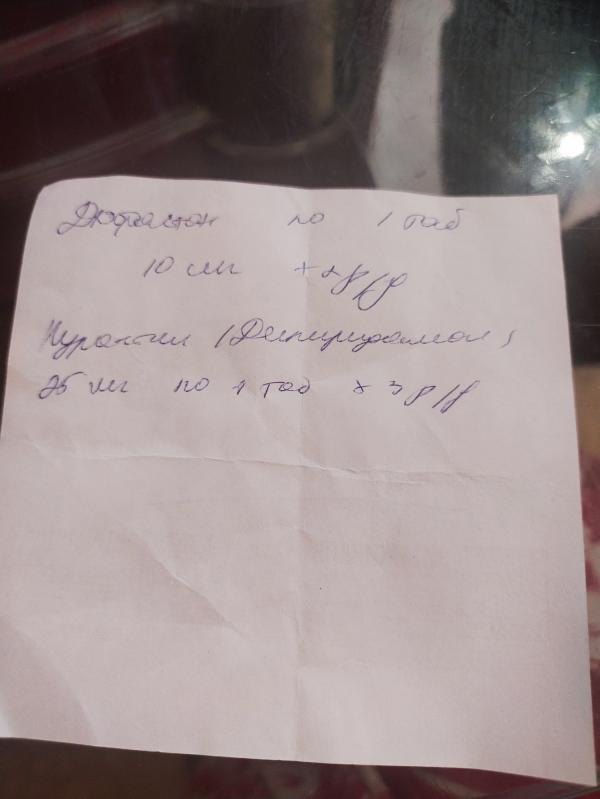 Дюфастон по 1 таб
10 мг х 2 р/д
Курантил (Дипиридамол)
25 мг по 1 таб х 3 р/д